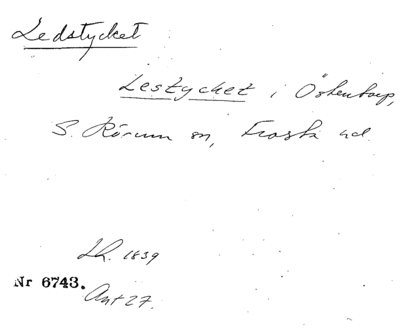 Ledstycket
Lestycket i Östentorp,
S. Rörum sn, Frosta hd.
Lh. 1839
Nr 6743.
Ant 27.